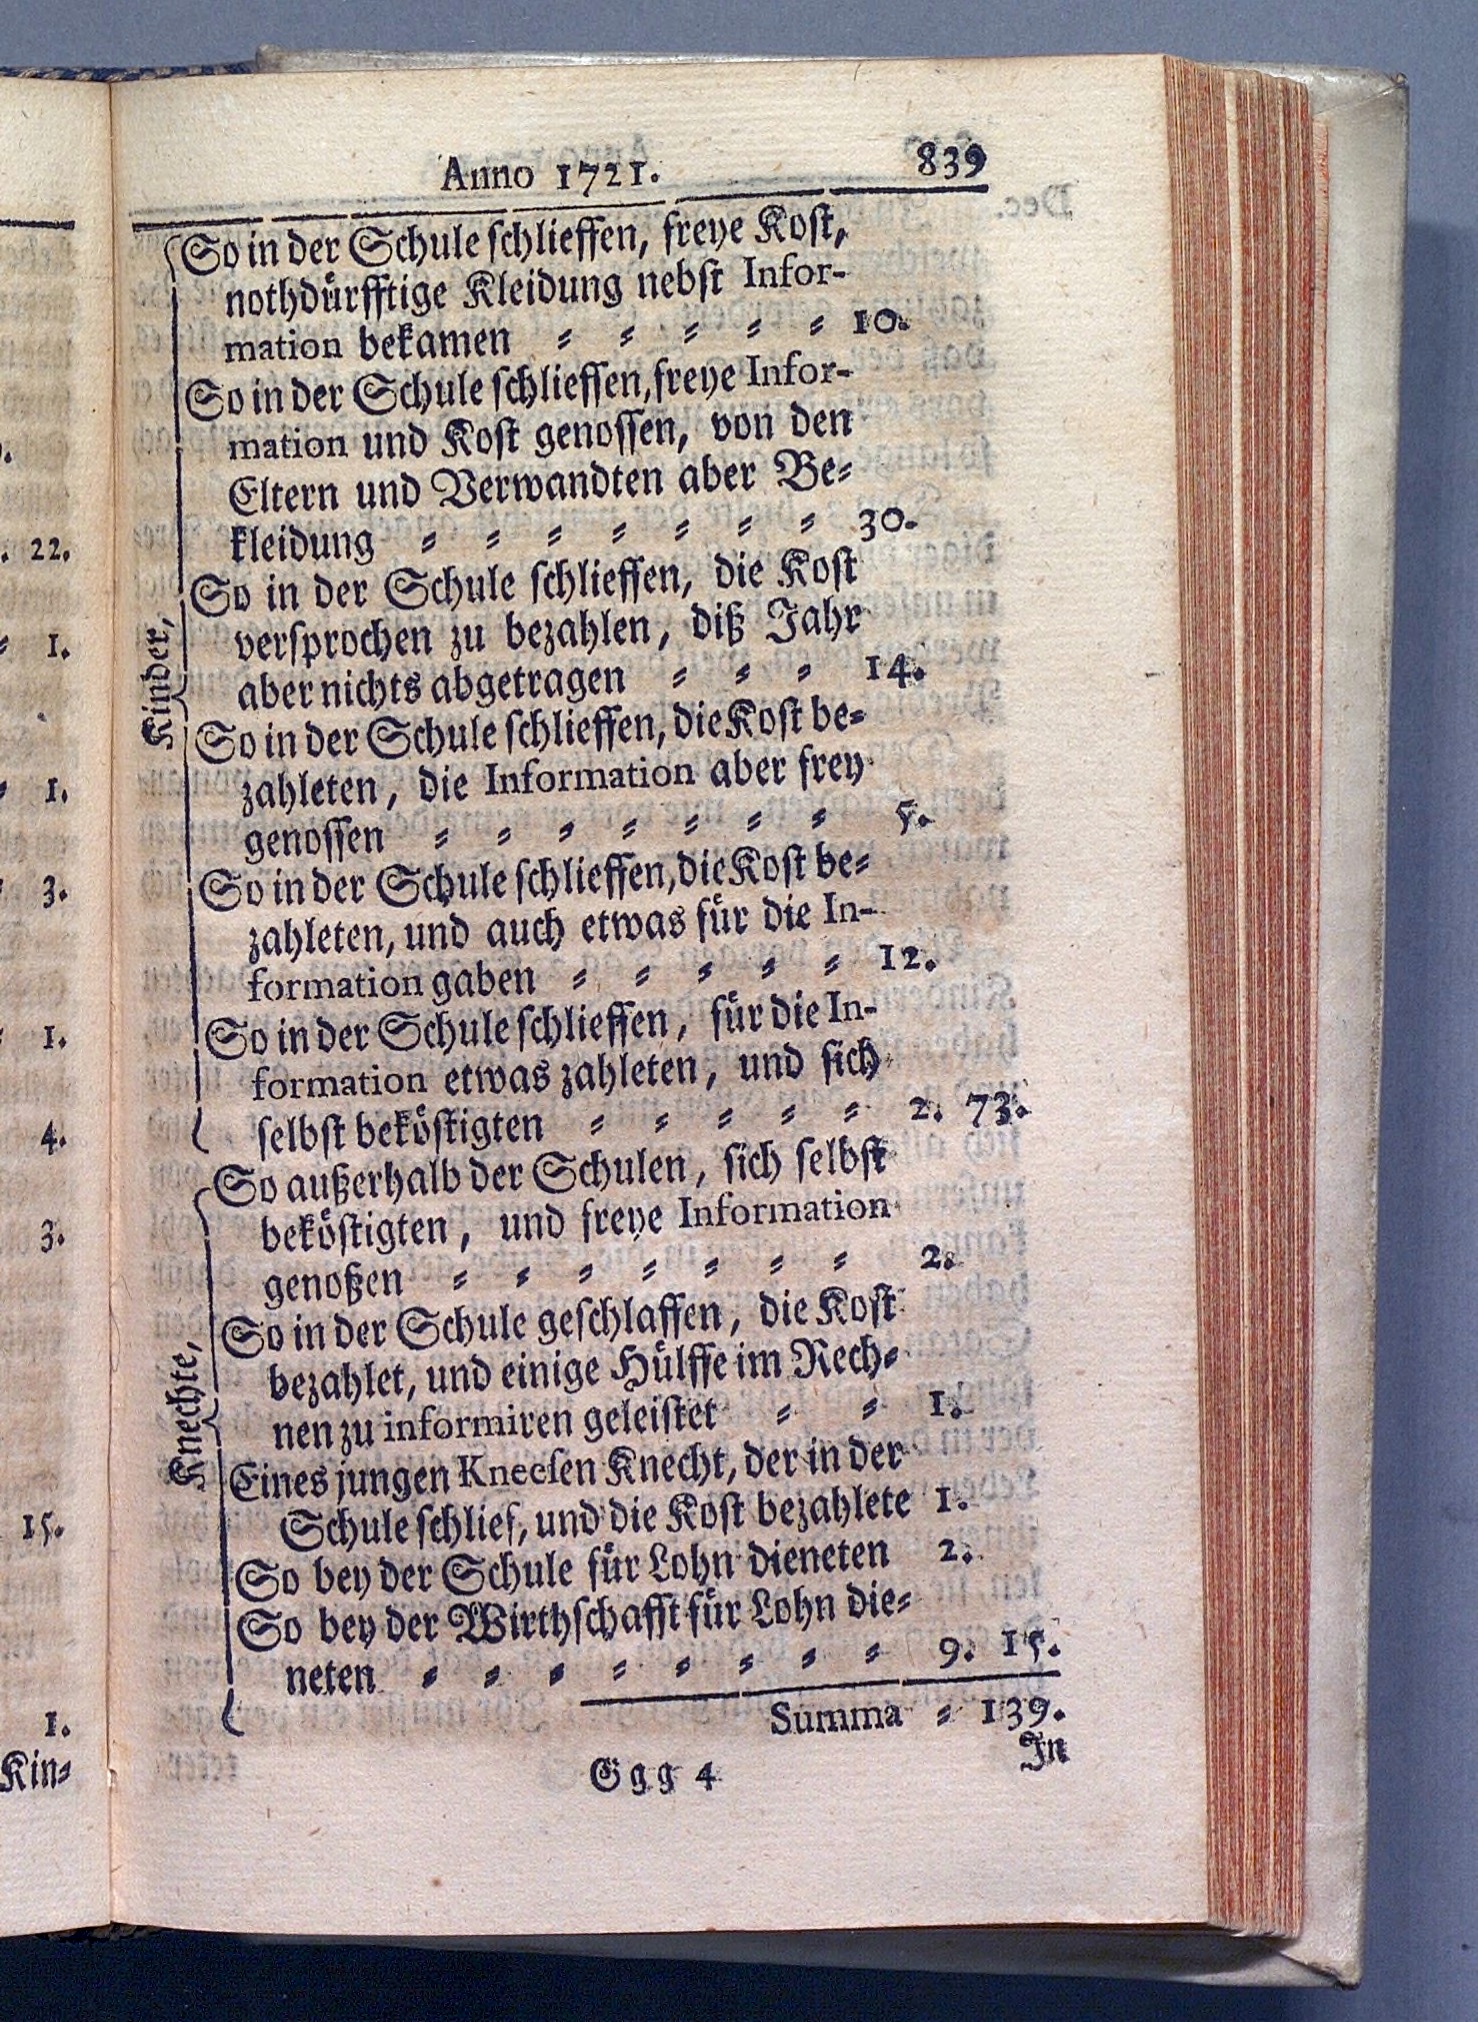 Anno 1721. 839
So in der Schule schlieffen, freye Kost,
nothdürfftige Kleidung nebst Infor-
mation bekamen = = = = = 10.
So in der Schule schlieffen, freye Infor-
mation und Kost genossen, von den
Eltern und Verwandten aber Be=
kleidung = = = = = = = 30.
So in der Schule schlieffen, die Kost
versprochen zu bezahlen, diß Jahr
aber nichts abgetragen = = = 14.
So in der Schule schlieffen, die Kost be=
zahleten, die Information aber frey
genossen = = = = = = = 5.
So in der Schule schlieffen, die Kost be=
zahleten, und auch etwas für die In-
formation gaben = = = = = 12.
So in der Schule schlieffen, für die In-
formation etwas zahleten, und sich
selbst beköstigten = = = = = 2. 73.
Kinder,
So außerhalb der Schulen, sich selbst
beköstigten, und freye Information
genoßen = = = = = = = 2.
So in der Schule geschlaffen, die Kost
bezahlet, und einige Hülffe im Rech=
nen zu informiren geleistet = = 1.
Eines jungen Kneesen Knecht, der in der
Schule schlief, und die Kost bezahlete 1.
So bey der Schule für Lohn dieneten 2.
So bey der Wirthschafft für Lohn die=
neten = = = = = = = = 9. 15.
Knechte,
Summa = 139.
Ggg 4
In
22.
1.
1.
3.
1.
4.
3.
15.
1.
Kin=